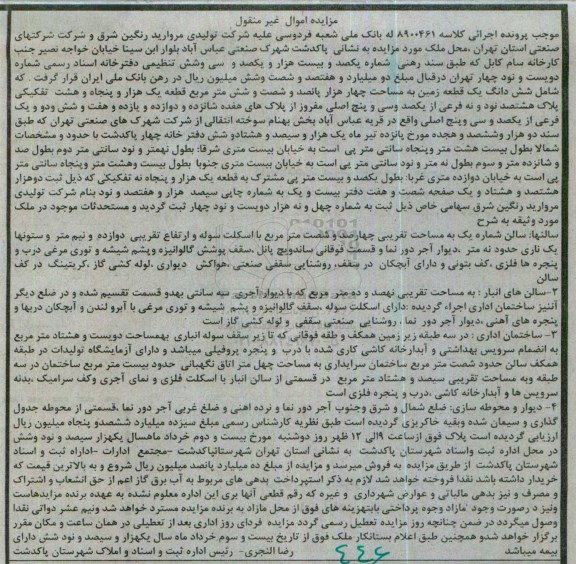 مزایده اموال غیر منقول
موجب پرونده اجرائی کلاسه ۸۹۰۰۴۶۱ له بانک ملی شعبه فردوسی علیه شرکت تولیدی مروارید رنگین شرق و شرکت شرکتهای
صنعتی استان تهران ،محل ملک مورد مزایده به نشانی پاکدشت شهرک صنعتی عباس آباد بلوار ابن سینا خیابان خواجه نصیر جنب
کارخانه سام کابل که طبق سند رهنی شماره یکصد و بیست هزار و یکصد و سی وشش تنظیمی دفترخانه اسناد رسمی شماره
دویست و نود چهار تهران درقبال مبلغ دو میلیارد و هفتصد و شصت وشش میلیون ریال در رهن بانک ملی ایران قرار گرفت . که
شامل شش دانگ یک قطعه زمین به مساحت چهار هزار پانصد و شصت و شش متر مربع قطعه یک هزار و پنجاه و هشت تفکیکی
پلاک هشتصد نود و نه فرعی از یکصد وسی و پنج اصلی مفروز از پلاک های هفده شانزده و دوازده و یازده و هفت و شش ودو و یک
فرعی از یکصد و سی وپنج اصلی واقع در قریه عباس آباد بخش بهنام سوخته انتقالی از شرکت شهرک های صنعتی تهران که طبق
سند دو هزار وششصد و هجده مورخ پانزده تیر ماه یک هزار و سیصد و هشتادو شش دفتر خانه چهار پاکدشت با حدود و مشخصات
شمالا بطول بیست هشت متر وپنجاه سانتی متر پی است به خیابان بیست متری شرقا: بطول نهمتر و نود سانتی متر دوم بطول صد
و شانزده متر و سوم بطول نه متر و نود سانتی متر پی است به خیابان بیست متری جنوبا بطول بیست وهشت متر وپنجاه سانتی متر
پی است به خیابان دوازده متری غربا: بطول یکصد و بیست متر پی مشترک به قطعه یک هزار و پنجاه نه تفکیکی که ذیل ثبت دوهزار
هشتصد و هشتاد و یک صفحه شصت و هفت دفتر بیست و یک به شماره چاپی سیصد هزار و هفتصد و نود بنام شرکت تولیدی
مروارید رنگین شرق سهامی خاص ذیل ثبت به شماره چهل و نه هزار دویست و نود چهار ثبت گردید و مستحدثات موجود در ملک
مورد وثیقه به شرح
سالنها: سالن شماره یک به مساحت تقریبی چهارصد و شصت متر مربع با اسکلت سوله و ارتفاع تقریبی دوازدم و نیم متر و ستونها
یک تاری حدود نه متر ،دیوار آجر دور نما و قسمت فوقانی ساندویچ پانل ،سقف پوشش گالوانیزه وپشم شیشه و توری مرغی درب و
پنجره ها فلزی ،کف بتونی و دارای آبچکان در سقف، روشنایی سقفی صنعتی ،هواکش دیواری ،لوله کشی گاز ،گریتینگ در کف
سالن
۲-سالن های انبار : به مساحت تقریبی نهصد و ده متر مربع که با دیوار آجری سه سانتی بهدو قسمت تقسیم شده و در ضلع دیگر
آنتیز ساختمان اداری اجراء گردیده :دارای اسکلت سوله ،سقف گالوانیزه و پشم شیشه و توری مرغی با آبرو لندن و آبچکان دربها و
پنجره های آهنی ،دیوار آجر دور نما ، روشنایی صنعتی سقفی و لوله کشی گاز است
۳- ساختمان اداری : در سه طبقه زیر زمین همکف و طقه فوقانی که تا زیر سقف سوله انباری بهمساحت دویست و هشتاد متر مربع
به انضمام سرویس بهداشتی و آبدارخانه کاشی کاری شده با درب و پنجره پروفیلی میباشد و دارای آزمایشگاه تولیدات در طبقه
همکف سالن حدود شصت متر مربع ساختمان سرایداری به مساحت چهل متر اتاق نگهبانی حدود بیست متر مربع ساختمان در سه
طبقه وبه مساحت تقریبی سیصد و هشتاد متر مربع در قسمتی از سالن انبار با اسکلت فلزی و نمای آجری وکف سرامیک ،بدنه
سرویس ها و آبدارخانه کاشی ،درب و پنجره فلزی است
۴- دیوار و محوطه سازی: ضلع شمال و شرق وجنوب آجر دور نما و نرده اهنی و ضلع غربی آجر دور نما ،قسمتی از محوطه جدول
گذاری و سیمان شده وبقیه خاکریزی گردیده است طبق نظریه کارشناس رسمی مبلغ سیزده میلیارد ششصدو پنجاه میلیون ریال
ارزیابی گردیده است پلاک فوق ازساعت ۹الی ۱۲ ظهر روز دوشنبه مورخ بیست و دوم خرداد ماهسال یکهزار سیصد و نود وشش
در محل اداره ثبت واسناد شهرستان پاکدشت به نشانی استان تهران شهرستانپاکدشت -مجتمع ادارات -اداراه ثبت و اسناد
شهرستان پاکدشت از طریق مزایده به فروش میرسد و مزایده از مبلغ ده میلیارد پانصد میلیون ریال شروع و به بالاترین قیمت که
خریدار داشته باشد نقدا فروخته خواهد شد لازم به ذکر استپرداخت بدهی های مربوط به آب برق گاز اعم از حق انشعاب و اشتراک
و مصرف و نیز بدهی مالیاتی و عوارض شهرداری و غیره که رقم قطعی آنها بری این اداره معلوم نشده به عهده برنده مزایدهاست
ونیز در صورت وجود مازاد وجوه پرداختی بابتهزینه های فوق از محل مازاد به برنده مزایده مسترد خواهد شد ونیم عشر دولتی نقدا
وصول میگردد در ضمن چنانچه روز مزایده تعطیل رسمی گردد مزایده فردای روز اداری بعد از تعطیلی در همان ساعت و مکان مقرر
برگزار خواهد شدو همچنین طبق اعلام بستانکار ملک فوق از تاریخ بیست و سوم خرداد ماه سال یکهزار و سیصد و نود شش دارای
بیمه میباشد رضا النجری- رئیس اداره ثبت و اسناد و املاک شهرستان پاکدشت
۴۴۶